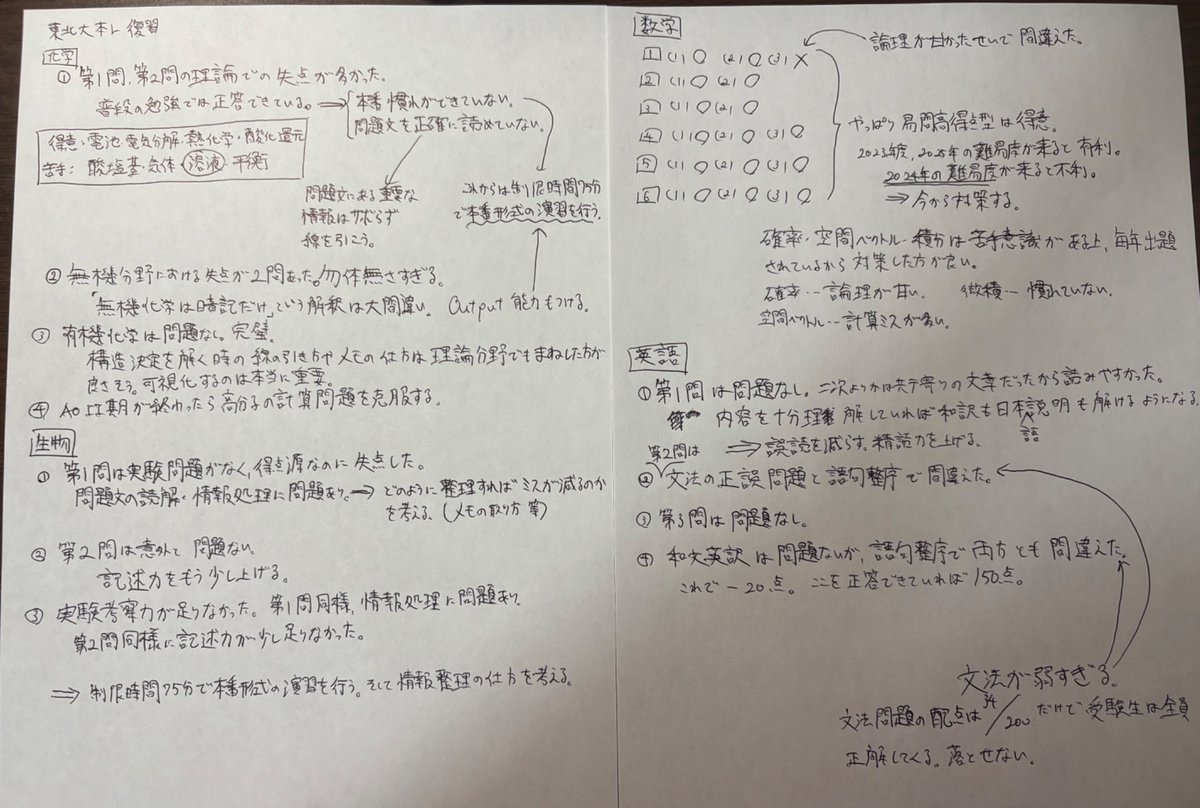 東北大本レ 復習
化学
① 第1問、第2問の理論での失点が多かった。
普段の勉強では正答できている。→ 本番慣れができていない。
問題文を正確に読めていない。
得意・電池 電気分解・熱化学・酸化還元
苦手: 酸塩基・気体・溶液・平衡
問題文にある重要な
情報はサボらず
線を引こう。
これからは制限時間75分
で本番形式の演習を行う。
② 無機分野における失点が2問あった。勿体無さすぎる。
「無機化学は暗記だけ」という解釈は大間違い。 Output 能力もつける。
③ 有機化学は問題なし。完璧。
構造決定を解く時の線の引き方やメモの仕方は理論分野でもまねした方が
良さそう。可視化するのは本当に重要。
④ AO Ⅱ期が終わったら高分子の計算問題を克服する。
生物
① 第1問は実験問題がなく、得点源なのに失点した。
問題文の読解・情報処理に問題あり。→ どのように整理すればミスが減るのか
を考える。(メモの取り方 等)
② 第2問は意外と問題ない。
記述力をもう少し上げる。
③ 実験考察力が足りなかった。第1問同様、情報処理に問題あり。
第2問同様に記述力が少し足りなかった。
⇒ 制限時間75分で本番形式の演習を行う。そして情報整理の仕方を考える。
数学
論理が甘かったせいで間違えた。
1 (1)○ (2)○ (3)×
2 (1)○ (2)○
3 (1)○ (2)○
4 (1)○ (2)○ (3)○
5 (1)○ (2)○ (3)○
6 (1)○ (2)○ (3)○
やっぱり易問高得点型は得意。
2023年度、2025年の難易度が来ると有利。
2024年の難易度が来ると不利。
⇒ 今から対策する。
確率・空間ベクトル・積分は苦手意識がある上、毎年出題
されているから対策した方が良い。
確率…論理が甘い。 微積…慣れていない。
空間ベクトル…計算ミスが多い。
英語
① 第1問は問題なし。二次よりかは共テ寄りの文章だったから読みやすかった。
内容を十分理解していれば和訳も日本語説明も解けるようになる。
⇒ 誤読を減らす。精読力を上げる。
② 第2問は文法の正誤問題と語句整序で間違えた。
③ 第3問は問題なし。
④ 和文英訳は問題ないが、語句整序で両方とも間違えた。
これで−20点。ここを正答できていれば150点。
文法が弱すぎる。
文法問題の配点は34/200だけで受験生は全員
正解してくる。落とせない。